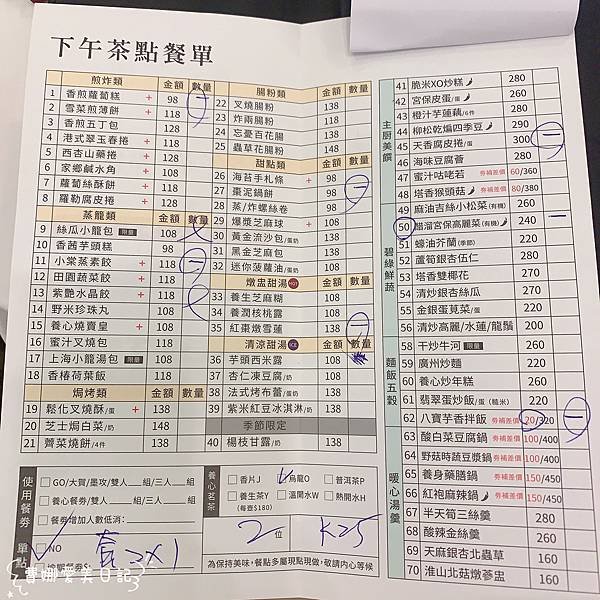 下午茶點餐單
煎炸類 金額 數量
1 香煎蘿蔔糕 + 98 一
2 雪菜煎薄餅 + 118
3 香煎五丁包 128
4 港式翠玉春捲 + 118
5 西杏山藥捲 + 128
6 家鄉鹹水角 + 108
7 蘿蔔絲酥餅 + 118
8 羅勒腐皮捲 + 118
蒸籠類 金額 數量
9 絲瓜小籠包 限量 108
10 香茜芋頭糕 108
11 小棠蒸素餃 + 118
12 田園蔬菜餃 + 118
13 紫艷水晶餃 + 118
14 野米珍珠丸 108
15 養心燒賣皇 + 108
16 蜜汁叉燒包 108
17 上海小籠湯包 限量 108
18 香椿荷葉飯 118
焗烤類 金額 數量
19 鬆化叉燒酥/蛋 + 138
20 芝士焗白菜/奶 148
21 薺菜燒餅/4件 138
腸粉類 金額 數量
22 叉燒腸粉 138
23 炸兩腸粉 138
24 忘憂百花腸 138
25 蟲草花腸粉 148
甜點類 金額 數量
26 海苔手札條 + 98 一
27 棗泥鍋餅 98
28 蒸/炸螺絲卷 98
29 爆漿芝麻球 + 108
30 黃金流沙包/蛋奶 108
31 黑金芝麻包 108
32 迷你菠蘿油/蛋奶 108
燉盅甜湯 HOT 金額 數量
33 養生芝麻糊 108
34 養潤核桃露 108
35 紅棗燉雪蓮 138 一
清涼甜湯 ICE 金額 數量
36 芋頭西米露 108
37 杏仁凍豆腐/奶 108
38 法式烤布蕾/蛋奶 108
39 紫米紅豆冰淇淋/奶 138
季節限定
40 楊枝甘露/奶 138
主廚美饌
41 脆米XO炒糕 280
42 宮保皮蛋/蛋 260
43 橙汁芋蓮藕/6件 280
44 柳松乾煸四季豆 290
45 天香腐皮捲/蛋 300 一
46 海味豆腐薈 280
47 蜜汁咕咾若 券補差價 60/360
48 塔香猴頭菇 券補差價 80/380
碧綠鮮蔬
49 麻油吉絲小松菜(有機) 220
50 醋溜宮保高麗菜(有機) 240 一
51 蠔油芥蘭(季節) 220
52 蘆筍銀杏伍仁 280
53 塔香雙椰花 270
54 清炒銀杏絲瓜 270
55 金銀蛋莧菜/蛋 220
56 清炒高麗/水蓮/龍鬚 200
麵飯五穀
58 干炒牛河 限量 220
59 廣州炒麵 220
60 養心炒年糕 260
61 翡翠蛋炒飯/蛋(糙米) 220
62 八寶芋香拌飯 券補差價 20/320 一
暖心湯羹
63 酸白菜豆腐鍋 券補差價 100/400
64 野菇時蔬豆漿鍋 券補差價 100/400
65 養身藥膳鍋 券補差價 150/450
66 紅袍麻辣鍋 券補差價 150/450
67 半天筍三絲羹 280
68 酸辣金絲羹 260
69 天麻銀杏北蟲草 160
70 淮山北菇燉蔘盅 160
使用餐劵
GO/大賀/墨攻/雙人 組/三人 組
養心餐券/雙人 組/三人 組
餐券增加人數低消:
單點
NO
套 3x1
養心名茶
香片J 烏龍O 普洱茶P
養生茶Y (每壺$180) 溫開水W 熱開水H
2 位 K25
為保持美味,餐點多屬現點現做,敬請内心等候
曹娜愛美日記